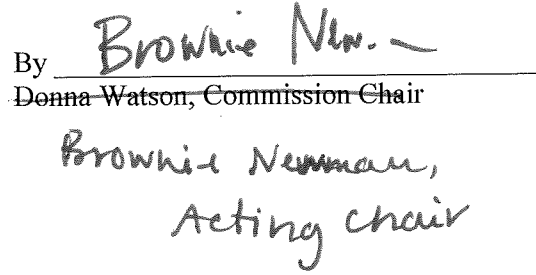 By Brownie New.
Donna Watson, Commission Chair
Brownie Newman,
Acting Chair